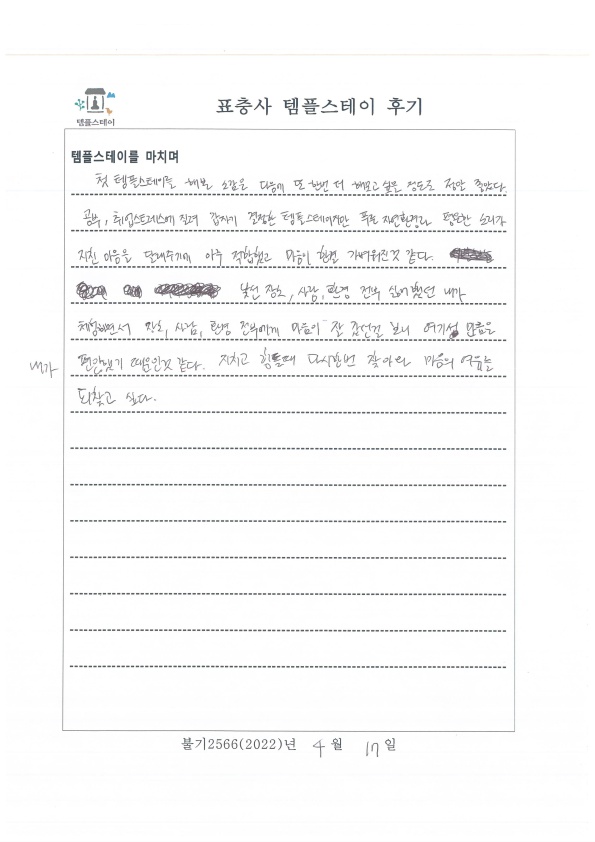 템플스테이
표충사 템플스테이 후기
템플스테이를 마치며
첫 템플스테이를 해본 소감은 다음에 또 한번 더 해보고 싶을 정도로 정말 좋았다.
공부, 취업스트레스에 질려 갑자기 결정한 템플스테이지만 푸른 자연환경과 평온한 소리가
지친 마음을 달래주기에 아주 적합했고 마음이 한결 가벼워진것 같다.
낯선 장소, 사람, 환경 전부 싫어했던 내가
체험하면서 장소, 사람, 환경 전부에게 마음이 잘 갔던걸 보니 여기서 만큼은
내가 편안했기 때문인것 같다. 지치고 힘들때 다시한번 찾아와 마음의 여유를
되찾고 싶다.
불기2566(2022)년 4월 17일